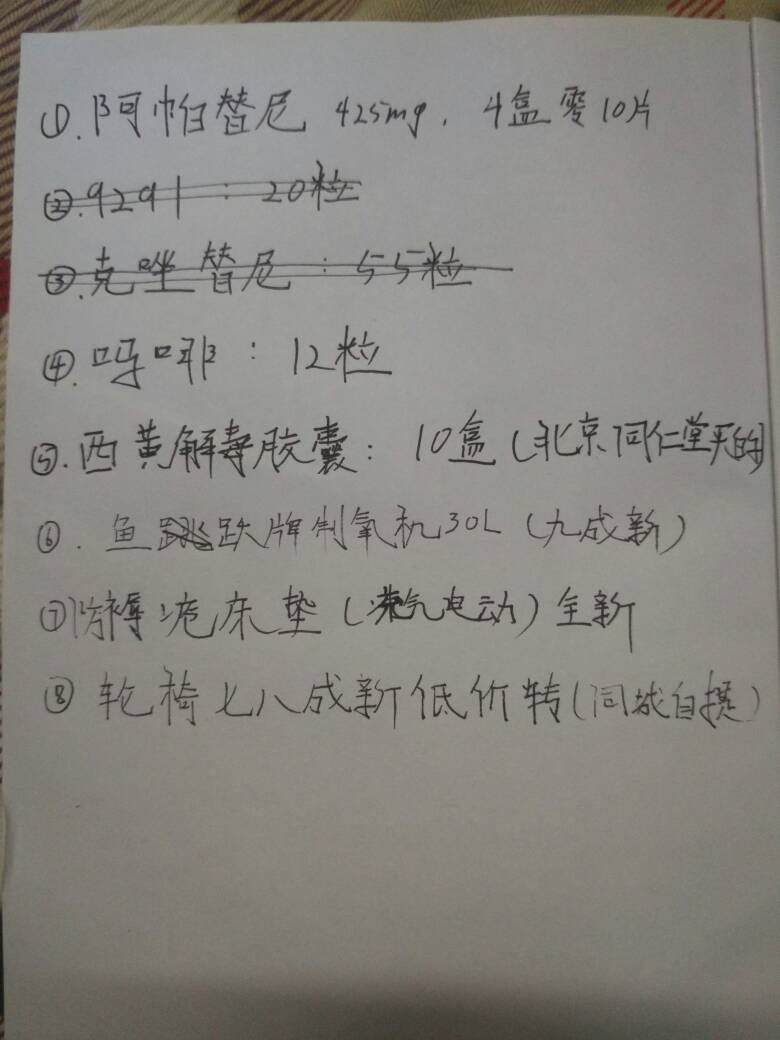 ①.阿帕替尼 425mg, 4盒零10片
②.9291:20粒
③.克唑替尼:55粒
④.吗啡:12粒
⑤.西黄解毒胶囊:10盒(北京同仁堂买的)
⑥.鱼跃牌制氧机30L(九成新)
⑦防褥疮床垫(充气电动)全新
⑧轮椅七八成新低价转(同城自提)